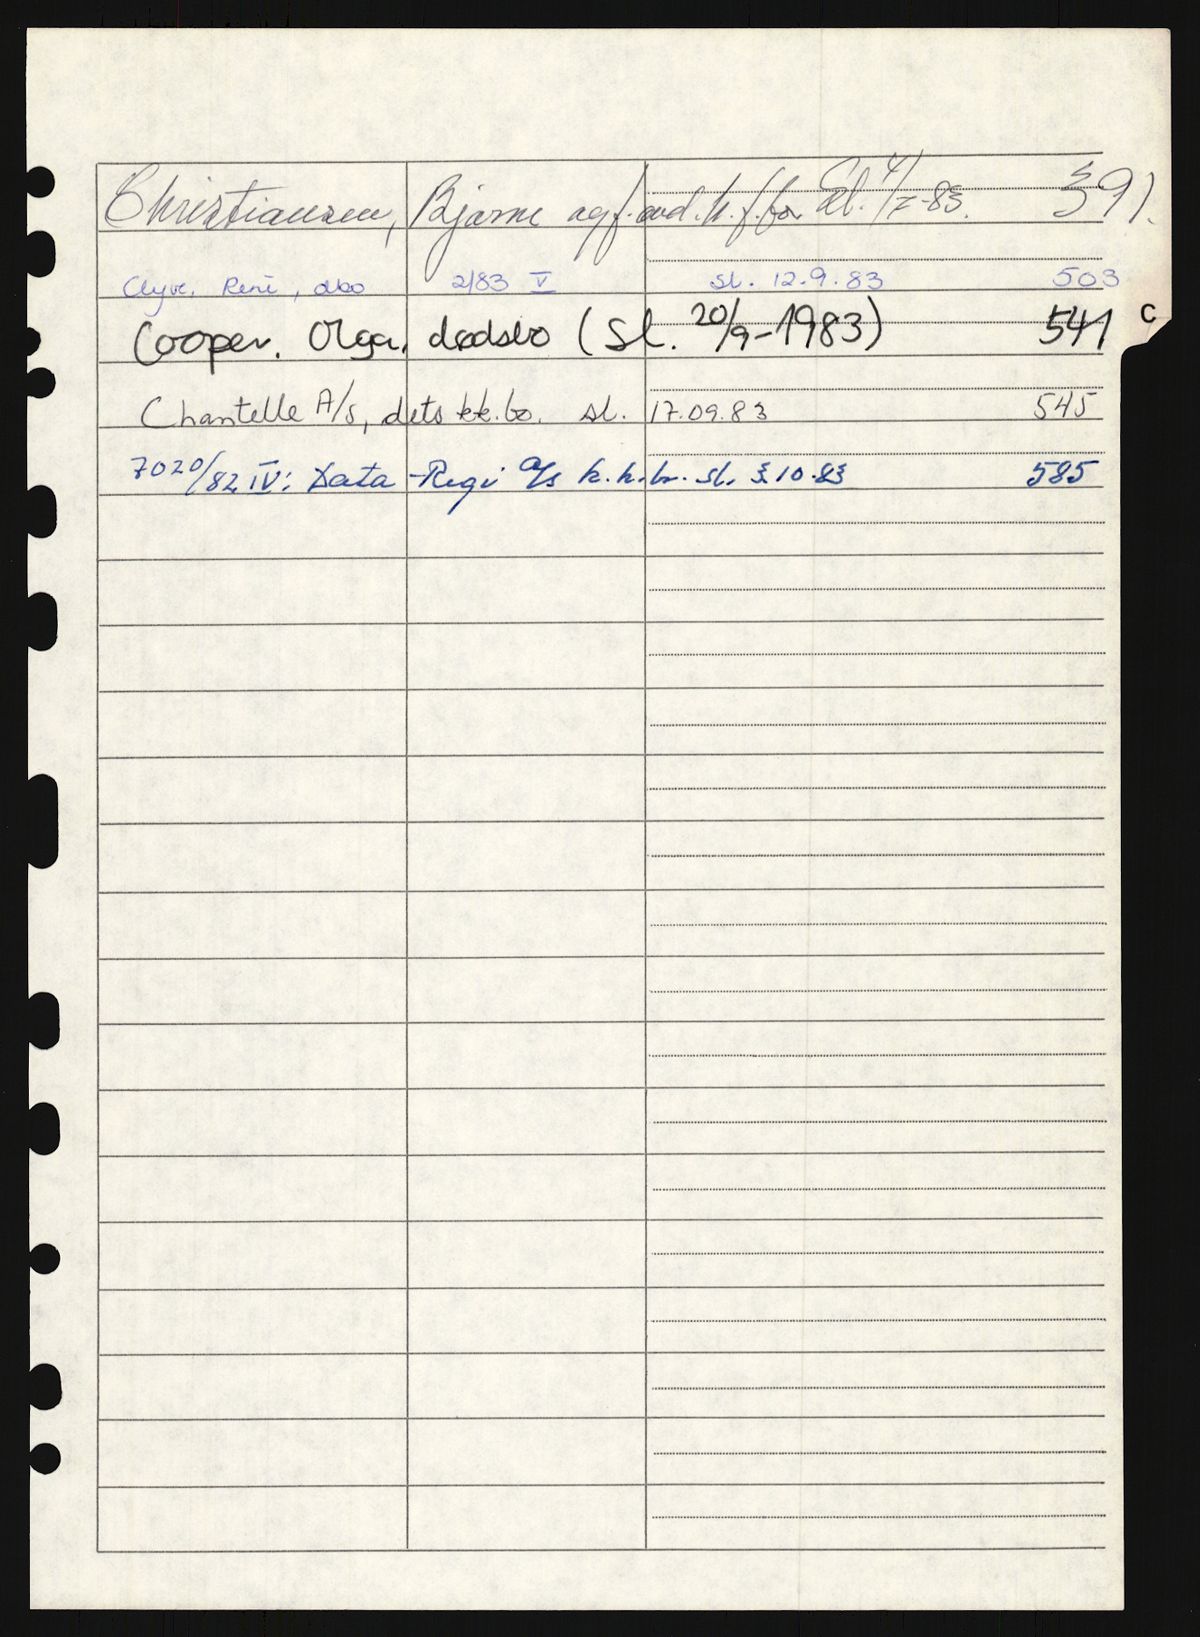 Christiansen, Bjarne avd. k.f.bo Sl. 4/7-83. 391.
Clyve, René, dbo 2/83 V sl. 12.9.83 503
Cooper, Olga, dødsbo (Sl. 20/9-1983) 541
C
Chantelle A/s, dets kk.bo. sl. 17.09.83 545
7020/82 IV: Data-Regi a/s k.k.bo. sl. 3.10.83 585